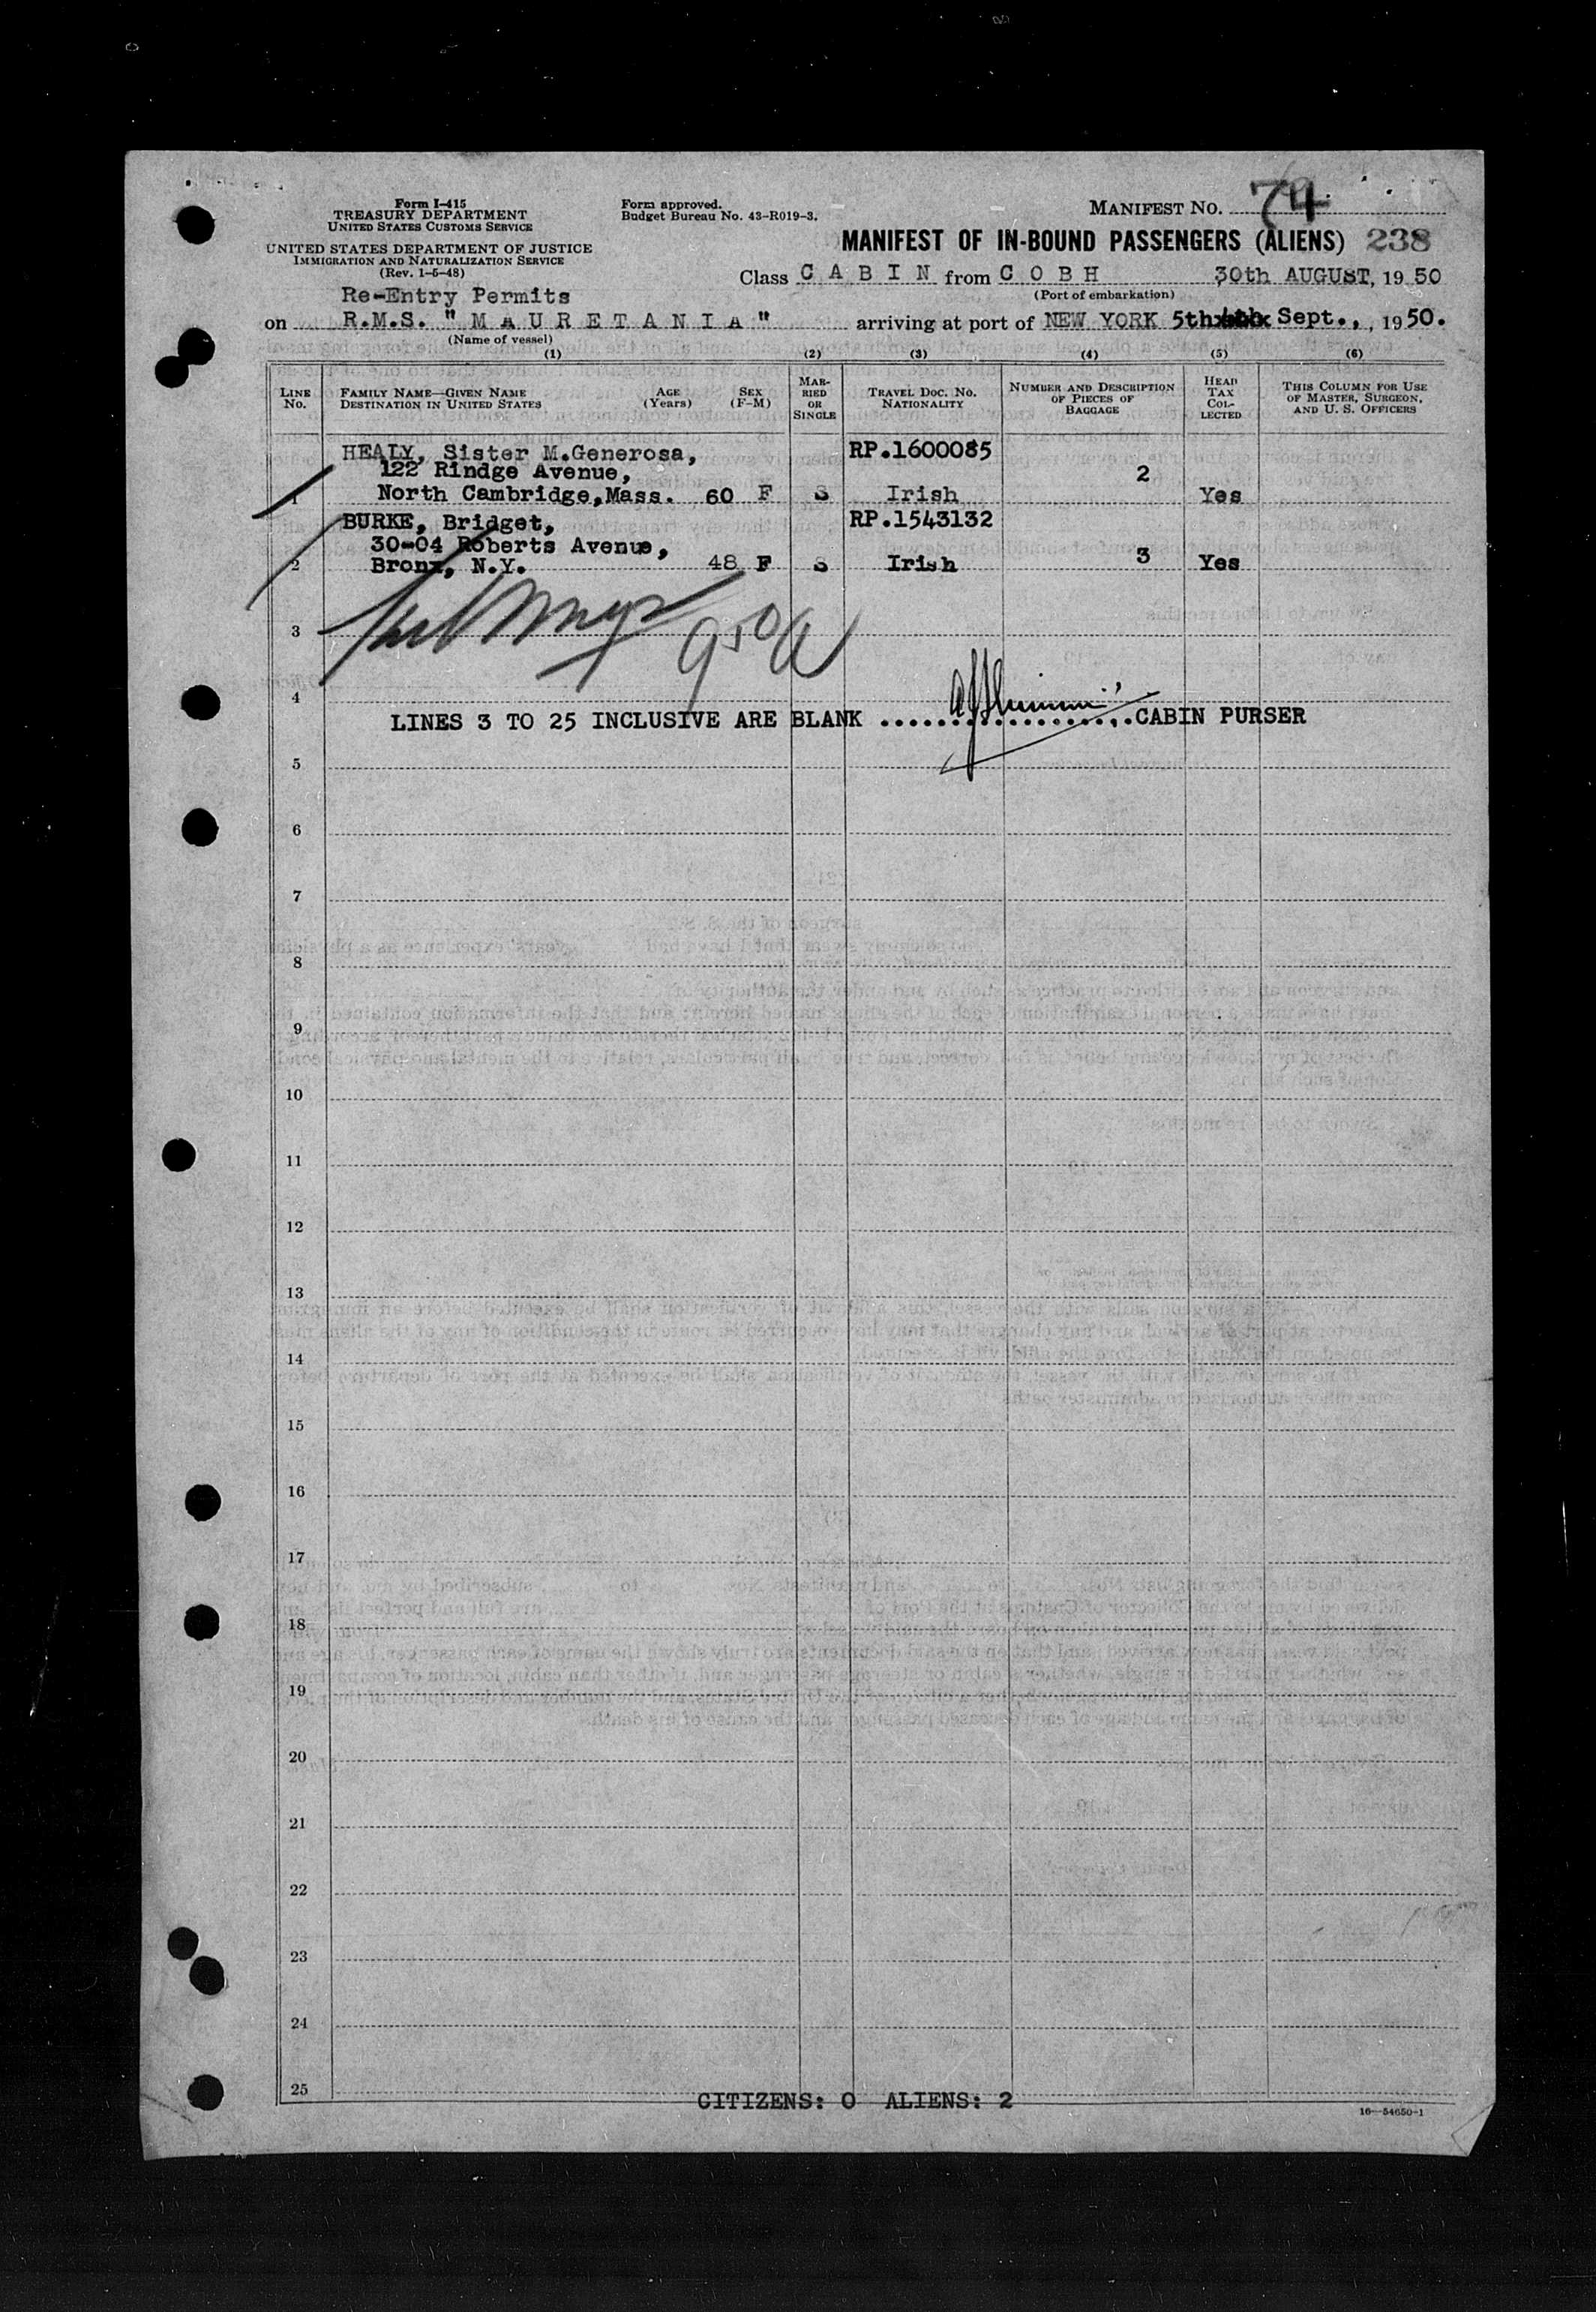 Form I-415
TREASURY DEPARTMENT
UNITED STATES CUSTOMS SERVICE
UNITED STATES DEPARTMENT OF JUSTICE
IMMIGRATION AND NATURALIZATION SERVICE
(Rev. 1-5-48)
Form approved.
Budget Bureau No. 43-R019-3.
MANIFEST NO. 74
MANIFEST OF IN-BOUND PASSENGERS (ALIENS) 238
Class CABIN from COBH 30th AUGUST, 1950
(Port of embarkation)
Re-Entry Permits
on R.M.S. "MAURETANIA" arriving at port of NEW YORK 5th Sept., , 1950.
(Name of vessel)
(1) (2) (3) (4) (5) (6)
LINE No.
FAMILY NAME—GIVEN NAME
DESTINATION IN UNITED STATES
AGE (Years)
SEX (F-M)
MARRIED OR SINGLE
TRAVEL DOC. NO.
NATIONALITY
NUMBER AND DESCRIPTION OF PIECES OF BAGGAGE
HEAD TAX COLLECTED
THIS COLUMN FOR USE OF MASTER, SURGEON, AND U. S. OFFICERS
HEALY, Sister M.Generosa, RP.1600085
122 Rindge Avenue, 2
1 North Cambridge,Mass. 60 F S Irish Yes
BURKE, Bridget, RP.1543132
30-04 Roberts Avenue,
2 Bronx, N.Y. 48 F S Irish 3 Yes
3
4
LINES 3 TO 25 INCLUSIVE ARE BLANK ..................CABIN PURSER
5
6
7
8
9
10
11
12
13
14
15
16
17
18
19
20
21
22
23
24
25
CITIZENS: 0 ALIENS: 2
16—54650-1